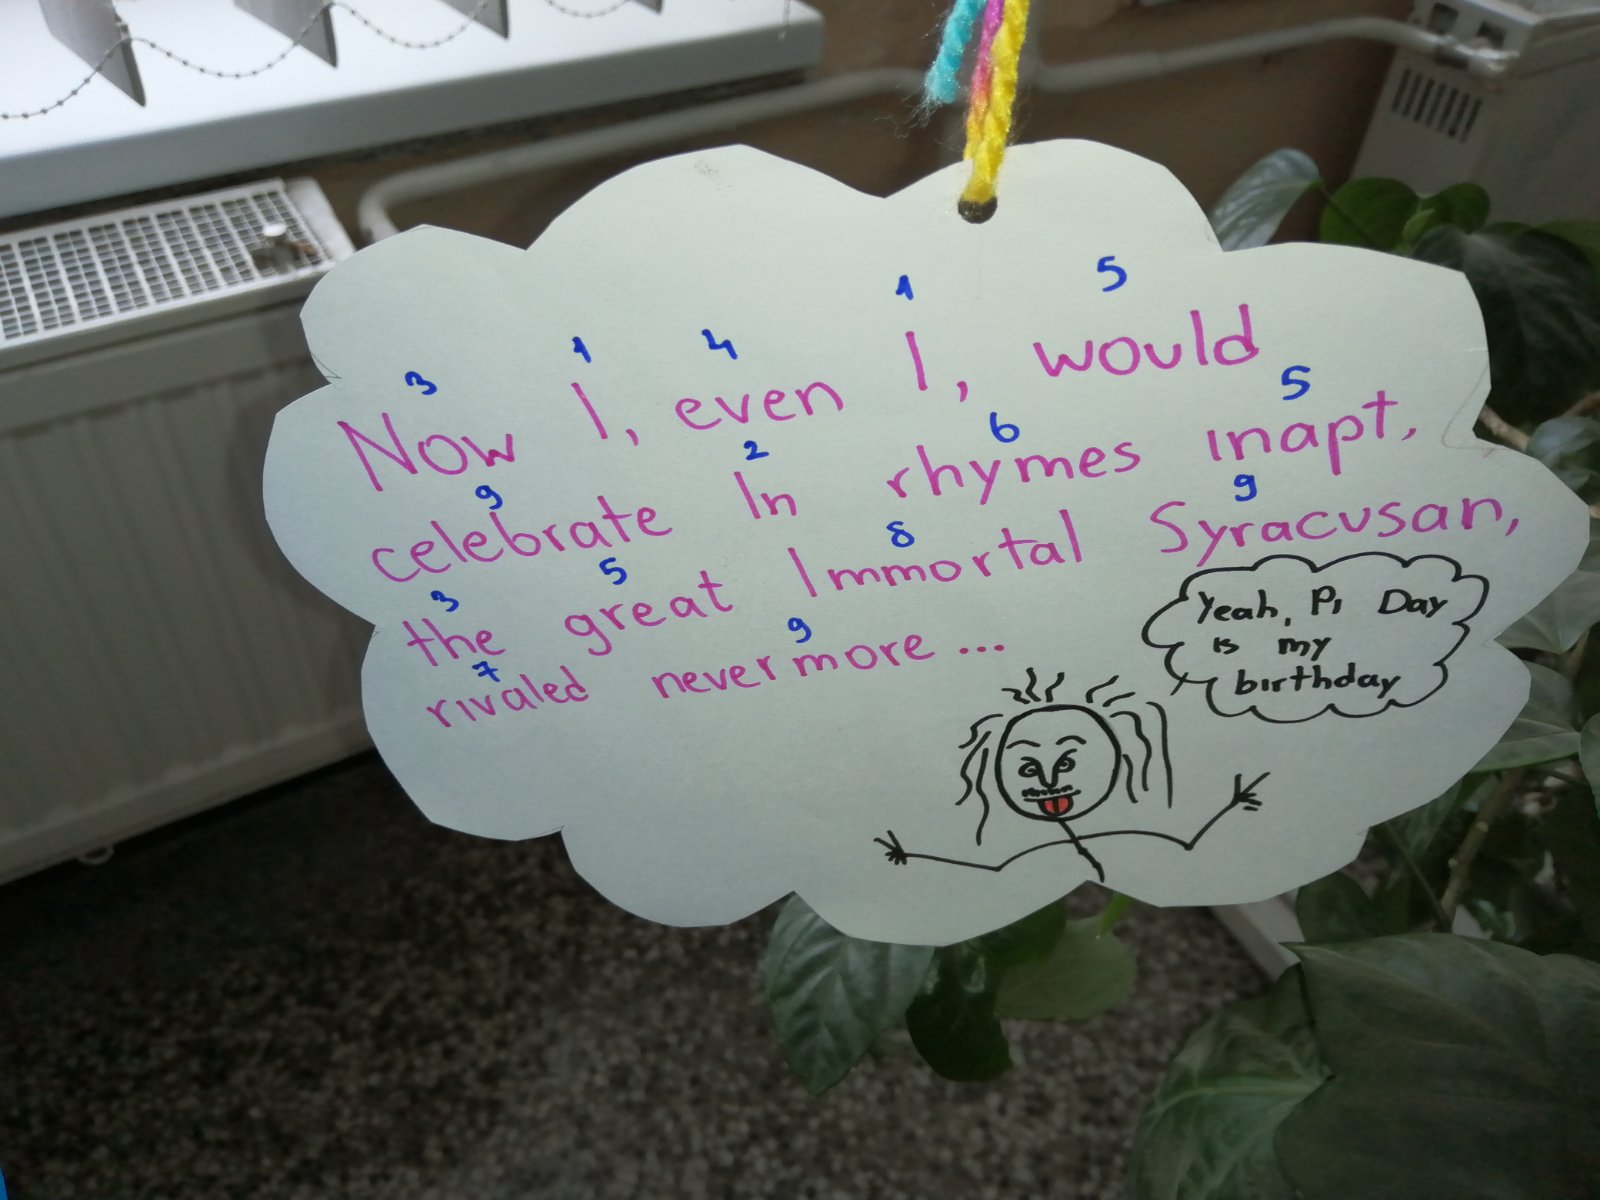 3 1 4 1 5
Now I, even I, would
9 2 6 5
celebrate In rhymes inapt,
3 5 8 9
the great Immortal Syracusan,
7 9
rivaled nevermore...
Yeah, Pi Day
is my
birthday